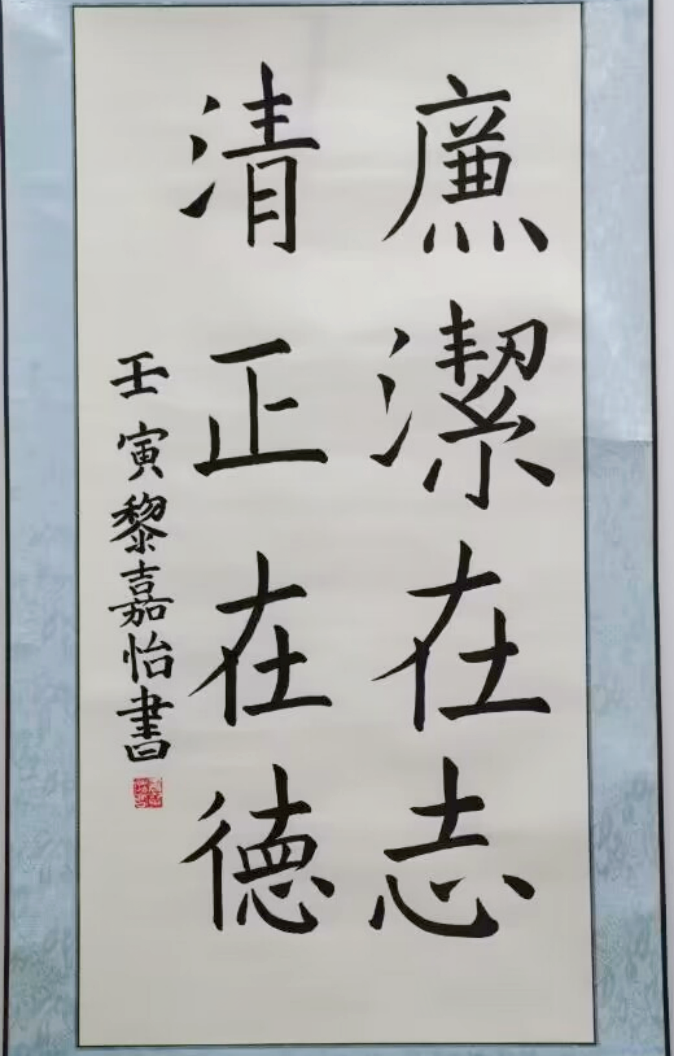 廉潔在志
清正在德
壬寅黎嘉怡書